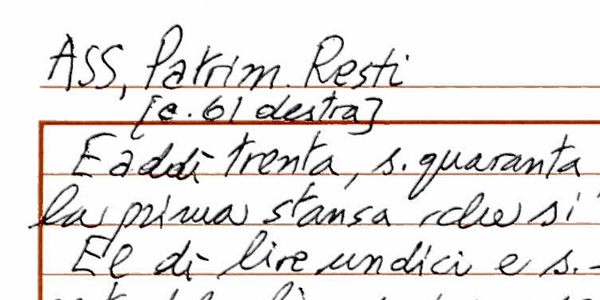 ASS, Patrim. Resti
[c. 61 destra]
E addì trenta, s. quaranta
la prima stansa che si
El di lire undici e s.